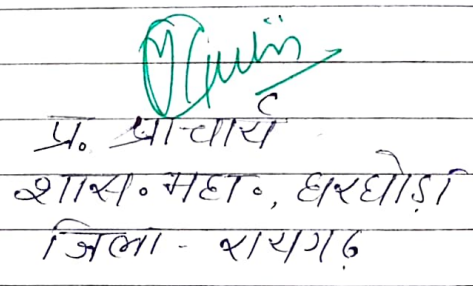 प्र. प्राचार्य
शास॰ महा॰, घरघोड़ा
जिला - रायगढ़